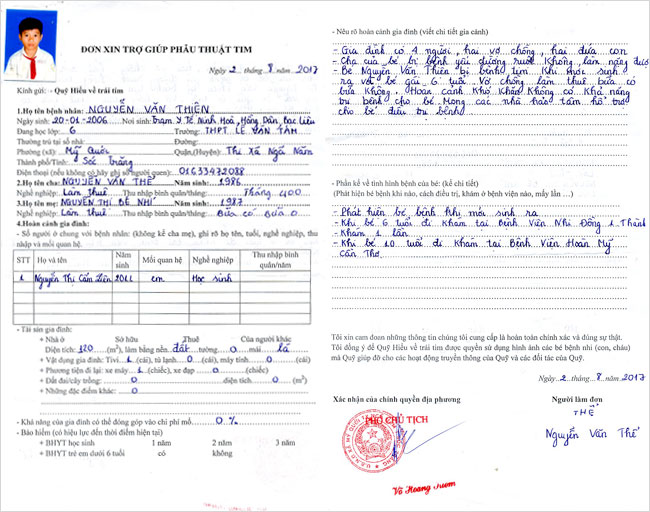 ĐƠN XIN TRỢ GIÚP PHẪU THUẬT TIM
Ngày 2 tháng 8 năm 2017
Kính gửi: - Quỹ Hiểu về trái tim
1.Họ tên bệnh nhân: NGUYỄN VĂN THIỆN
Ngày sinh: 20-01-2006 Nơi sinh: Trạm Y Tế Ninh Hoà, Hồng Dân, Bạc Liêu
Đang học lớp: 6 Trường: THPT LÊ VĂN TÁM
Thường trú tại số nhà: Đường:
Phường (xã): Mỹ Quới Quận,(Huyện): Thị Xã Ngã Năm
Thành phố/Tỉnh: Sóc Trăng
Điện thoại (nếu không có hãy ghi số người quen): 01633472088
2.Họ tên cha: NGUYỄN VĂN THỂ Năm sinh: 1986
Nghề nghiệp: Làm thuê Thu nhập bình quân/tháng: Tháng 400
3.Họ tên mẹ: NGUYỄN THỊ BÉ NHÍ Năm sinh: 1987
Nghề nghiệp: Làm thuê Thu nhập bình quân/tháng: Bữa có Bữa 0
4.Hoàn cảnh gia đình:
- Số người ở chung với bệnh nhân: (không kể cha mẹ), ghi rõ họ tên, tuổi, nghề nghiệp, thu nhập và mối quan hệ.
STT Họ và tên Năm sinh Mối quan hệ Nghề nghiệp Thu nhập bình quân/năm
1 Nguyễn Thị Cẩm Tiên 2011 em Học sinh
- Tài sản gia đình:
+ Nhà ở Sở hữu Thuê Của người khác
Diện tích: 120 (m²), làm bằng nền đất tường: 0 mái lá
+ Vật dụng gia đình: Tivi 1 (cái), tủ lạnh 0 (cái), máy tính 0 (cái)
+ Phương tiện đi lại: xe máy 1 (chiếc), xe đạp 0 (chiếc)
+ Đất đai/cây trồng: 0 diện tích 0 (m²)
+ Những đặc điểm khác: 0
- Khả năng của gia đình có thể đóng góp vào chi phí mổ 0 %
- Bảo hiểm (có hiệu lực đến thời điểm hiện tại)
+ BHYT học sinh 1 năm 2 năm 3 năm
+ BHYT trẻ em dưới 6 tuổi có không
- Nêu rõ hoàn cảnh gia đình (viết chi tiết gia cảnh)
- Gia đình có 4 người, hai vợ chồng, hai đứa con
- Cha của bé bị bệnh yếu đường ruột không làm nặng được
- Bé Nguyễn Văn Thiện bị bệnh tim khi mới sinh
ra với bé gái 6 tuổi. Vợ chồng làm thuê bữa có
bữa không. Hoàn cảnh khó khăn không có khả năng
trị bệnh cho bé. Mong các nhà hảo tâm hỗ trợ
cho bé điều trị bệnh
- Phần kể về tình hình bệnh của bé: (kể chi tiết)
(Phát hiện bé bệnh khi nào, cách điều trị, khám ở bệnh viện nào, mấy lần …)
- Phát hiện bé bệnh khi mới sinh ra
- Khi bé 6 tuổi đi khám tại Bệnh Viện Nhi Đồng 1 Thành
- Khám 1 lần
- Khi bé 10 tuổi đi khám tại Bệnh Viện Hoàn Mỹ
Cần Thơ
Tôi xin cam đoan những thông tin chúng tôi cung cấp là hoàn toàn chính xác và đúng sự thật.
Tôi đồng ý để Quỹ Hiểu về trái tim được quyền sử dụng hình ảnh các bé bệnh nhi (con, cháu)
mà Quỹ giúp đỡ cho các hoạt động truyền thông của Quỹ và các đối tác của Quỹ.
Ngày 2 tháng 8 năm 2017
Xác nhận của chính quyền địa phương Người làm đơn
PHÓ CHỦ TỊCH THỂ
Nguyễn Văn Thể